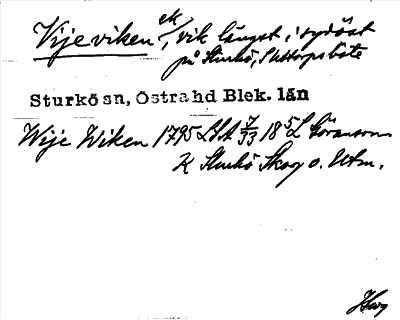 Vijeviken ek/, vik längst i sydöst
på Sturkö, Uttorpsböte
Sturkö sn, Östra hd Blek. län
Wije Wiken 1795 LSA 7/33 18 5/2 Göransson
K Sturkö Skog o. Utm.